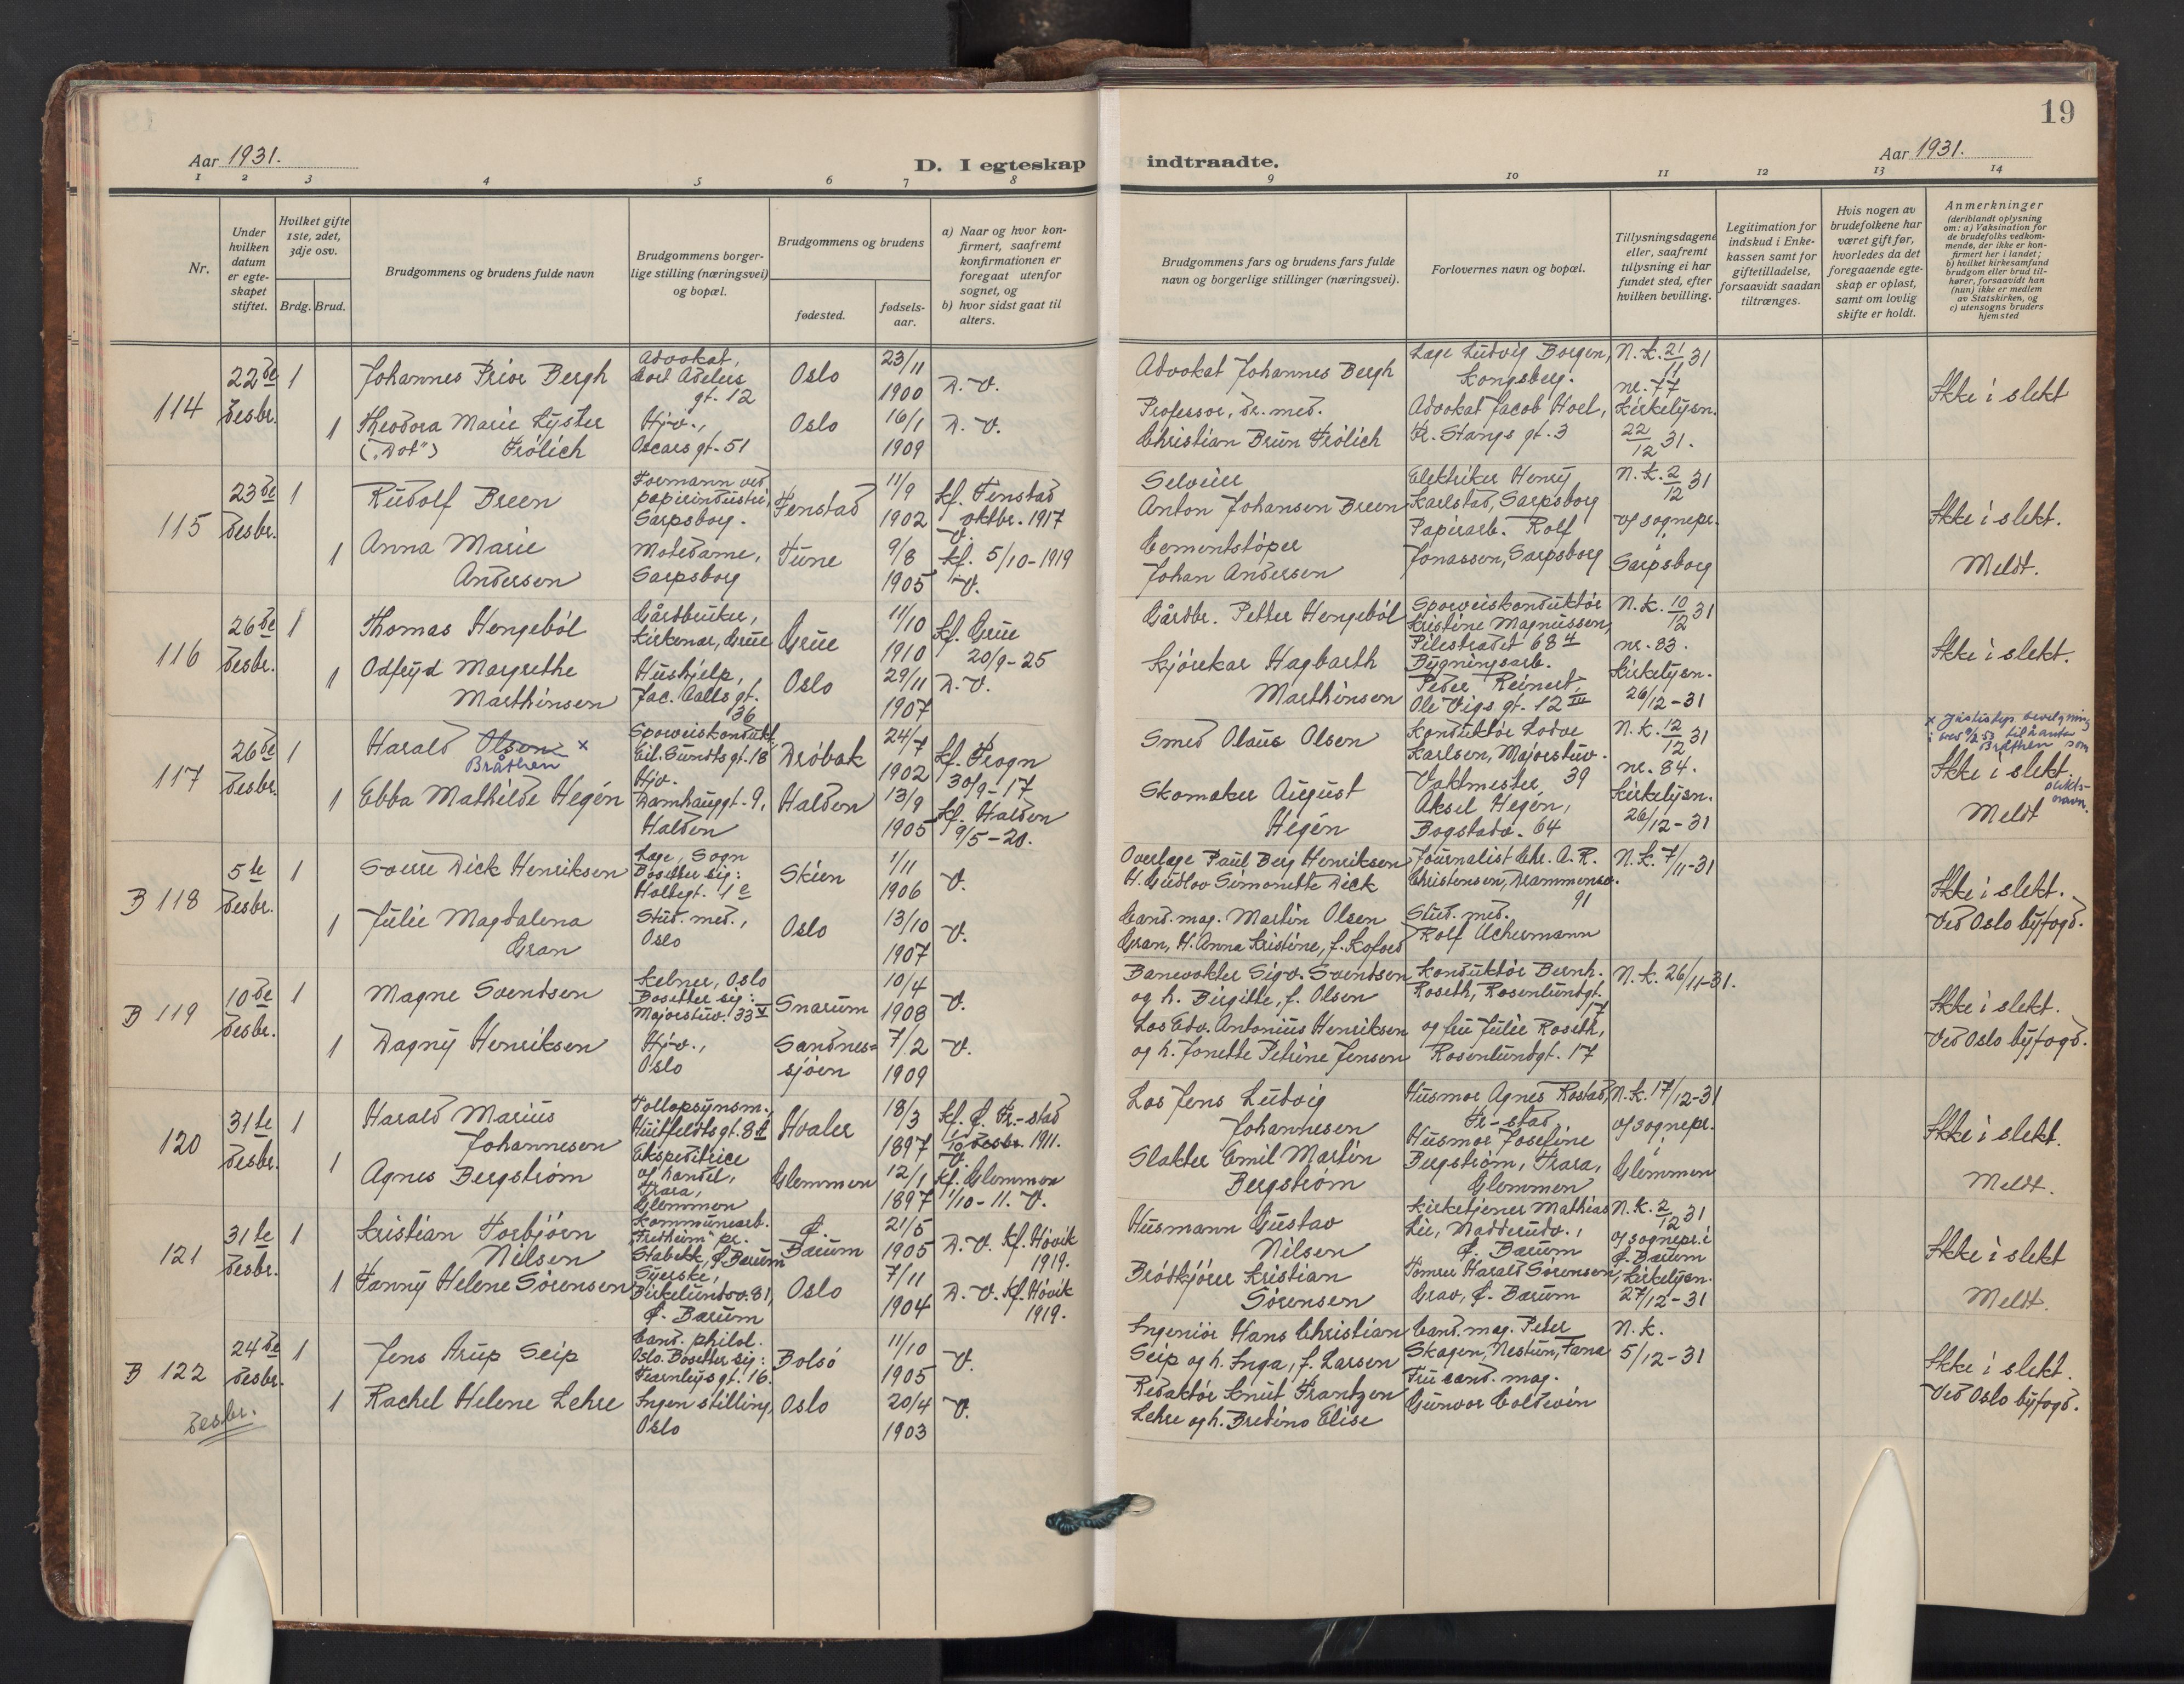 19
Aar 1931.
D. I egteskap indtraadte.
Aar 1931.
1 2 3 4 5 6 7 8 9 10 11 12 13 14
Nr.
Under
hvilken
datum
er egte-
skapet
stiftet.
Hvilket gifte
1ste, 2det,
3dje osv.
Brdg. Brud.
Brudgommens og brudens fulde navn
Brudgommens borger-
lige stilling (næringsvei)
og bopæl.
Brudgommens og brudens
fødested.
fødsels-
aar.
a) Naar og hvor kon-
firmert, saafremt
konfirmationen er
foregaat utenfor
sognet, og
b) hvor sidst gaat til
alters.
Brudgommens fars og brudens fars fulde
navn og borgerlige stillinger (næringsvei).
Forlovernes navn og bopæl.
Tillysningsdagene
eller, saafremt
tillysning ei har
fundet sted, efter
hvilken bevilling.
Legitimation for
indskud i Enke-
kassen samt for
giftetilladelse,
forsaavidt saadan
tiltrænges.
Hvis nogen av
brudefolkene har
været gift før,
hvorledes da det
foregaaende egte-
skap er opløst,
samt om lovlig
skifte er holdt.
Anmerkninger
(deriblandt oplysning
om: a) Vaksination for
de brudefolks vedkom-
mende, der ikke er kon-
firmert her i landet;
b) hvilket kirkesamfund
brudgom eller brud til-
hører, forsaavidt han
(hun) ikke er medlem
av Statskirken, og
c) utensogns bruders
hjemsted
114
22de
desbr.
1
Johannes Prior Bergh
Advokat,
Cort Adelers
gt. 12
Oslo
23/11
1900
D. V.
Advokat Johannes Bergh
Læge Ludvig Borgen,
Kongsberg.
N.K. 21/11 31
nr. 77
Ikke i slekt
1
Theodora Marie Lyster
("Dot") Frölich
Hjv.,
Oscars gt. 51
Oslo
16/1
1909
D. V.
Professor, dr. med.
Christian Brun Frölich
Advokat Jacob Hoel,
Fr. Stangs gt. 3
Kirkelysn.
22/12 31.
115
23de
desbr.
1
Rudolf Breen
Formann ved
papirindustri,
Sarpsborg.
Fenstad
11/9
1902
Kf. Fenstad
oktbr. 1917
V.
Selveier
Anton Johansen Breen
Elektriker Henry
Karlstad, Sarpsborg
N.K. 2/12 31
Ikke i slekt.
1
Anna Marie
Andersen
Motedame,
Sarpsborg
Tune
9/8
1905
Kf. 5/10-1919
V.
Cementstöper
Johan Andersen
Papirarb. Rolf
Jonassen, Sarpsborg
af sognepr.
i
Sarpsborg
Meldt.
116
26de
desbr.
1
Thomas Hengeböl
Gårdbruker,
Kirkenær, Grue
Grue
11/10
1910
Kf. Grue
20/9-25
Gårdbr. Petter Hengeböl
Sporveiskonduktör
Kristine Magnussen,
Pilestradet 68 4
N.K. 10/12 31
nr. 83.
Ikke i slekt.
1
Odfryd Margrethe
Marthinsen
Hushjelp,
Jac. Aalls gt.
36
Oslo
29/11
1907
D. V.
Kjörekar Hagbarth
Marthinsen
Bygningsarb.
Peder Reinert,
Ole Vigs gt. 12 III
Kirkelysn.
26/12-31
117
26de
desbr.
1
Harald Olsen x
Bråthen
Sporveiskondukt.
Eil. Sundts gt. 18
Dröbak
24/7
1902
Kf. Frogn
30/9-17
Smed Olaus Olsen
Konduktör Lodve
Karlsen, Majorstuv.
39
N.K. 12/12 31
nr. 84.
Ikke i slekt.
x Justisdep bevilgning
Bråthen som
slekts-
navn.
1
Ebba Mathilde Hegén
Hjv.
Damhauggt. 9,
Halden
Halden
13/9
1905
Kf. Halden
9/5-20.
Skomaker August
Hegén
Vaktmester
Aksel Hegén,
Bogstadv. 64
Kirkelysn.
26/12-31
Meldt
B 118
5te
desbr.
1
Sverre Dick Henriksen
Læge, Sogn
Bosetter sig:
Holtegt. 1 c
Skien
1/11
1906
V.
Overlæge Paul Berg Henriksen
H. Gudlov Simonette Dick
Journalist Chr. A. R.
Christensen, Drammensv.
91
N.K. 7/11-31
Ikke i slekt.
Ved Oslo byfogd.
1
Julie Magdalena
Gran
Stud. med.,
Oslo
Oslo
13/10
1907
V.
Cand. mag. Martin Olsen
Gran, H. Anna Kristine, f. Kofoed
Stud. med.
Rolf Achermann
B 119
10de
desbr.
1
Magne Svendsen
Kelner, Oslo
Bosetter sig:
Majorstuv. 33 V
Snarum
10/4
1908
V.
Banevokter Sigv. Svendsen
og h. Birgitte, f. Olsen
Konduktör Bernh.
Roseth, Rosenlundgt.
17
N.K. 26/11-31.
Ikke i slekt.
Ved Oslo byfogd.
1
Dagny Henriksen
Hjv.,
Oslo
Sandnes-
sjöen
7/2
1909
V.
Los Edv. Antonius Henriksen
og h. Jonette Petrine Jensen
og fru Julie Roseth,
Rosenlundgt. 17
120
31te
desbr.
1
Harald Marius
Johannesen
Tollopsynsm.,
Huitfeldts gt. 8
Hvaler
18/3
1897
Kf. Ö. Fr.-stad
desbr. 1911.
V.
Los Jens Ludvig
Johannesen
Husmor Agnes Rostad,
Fr-stad
N.K. 17/12-31
af sognepr.
i
Glemmen
Ikke i slekt.
1
Agnes Bergström
Ekspeditrice
af handel,
Trara,
Glemmen
Glemmen
12/1
1897
Kf. Glemmen
1/10-11. V.
Slakter Emil Martin
Bergström
Husmor Josefine
Bergström, Trara,
Glemmen
Meldt.
121
31te
desbr.
1
Kristian Torbjörn
Nilsen
Kommunearb.
"Fredheim" pr.
Stabekk, Ö. Bærum
Ö.
Bærum
21/5
1905
D. V. Kf. Hövik
1919.
Husmann Gustav
Nilsen
Kirketjener Mathias
Lie, Nadderudv.,
Ö. Bærum
N.K. 2/12 31
af sognepr. i
Ö. Bærum
Ikke i slekt
1
Fanny Helene Sörensen
Syerske,
Birkelundsv. 81,
Ö. Bærum
Oslo
7/11
1904
D. V. Kf. Hövik
1919.
Brödkjörer Kristian
Sörensen
Tömrer Harald Sörensen,
Grav, Ö. Bærum
Kirkelysn.
27/12-31
Meldt.
B 122
24de
desbr.
1
Jens Arup Seip
Cand. philol.
Oslo. Bosetter sig:
Fearnleys gt. 16.
Bolsö
11/10
1905
V.
Ingeniör Hans Christian
Seip og h. Inga, f. Larsen
Cand. mag. Peter
Skagen, Nestun, Fana
N.K.
5/12-31
Ikke i slekt.
Ved Oslo byfogd.
1
Rachel Helene Lehre
Ingen stilling,
Oslo
Oslo
20/4
1903
V.
Redaktör Knut Frantzen
Lehre og h. Bredine Elise
Fru cand. mag.
Gunvor Coldevin
desbr.